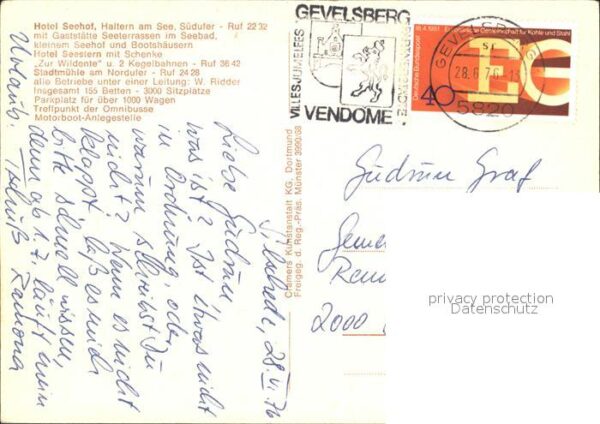 Hotel Seehof, Haltern am See, Südufer - Ruf 22 32
mit Gaststätte Seeterrassen im Seebad,
kleinem Seehof und Bootshäusern
Hotel Seestern mit Schenke
„Zur Wildente" u. 2 Kegelbahnen - Ruf 36 42
Stadtmühle am Nordufer - Ruf 24 28
alle Betriebe unter einer Leitung: W. Ridder
Insgesamt 155 Betten - 3000 Sitzplätze
Parkplatz für über 1000 Wagen
Treffpunkt der Omnibusse
Motorboot-Anlegestelle
28. VI. 76
Liebe Gudrun,
was ist? Ist etwas nicht
in Ordnung, oder
warum schreibst Du
nicht? Wenn es nicht
klappt, laß es mich
bitte schnell wissen,
denn ab 1.7. läuft mein
Urlaub. Tschüß Ramona
Cramers Kunstanstalt KG, Dortmund
Freigeg. d. Reg.-Präs. Münster 3990/68
GEVELSBERG
VILLES JUMELÉES
VENDOME
18.4.1951 Europäische Gemeinschaft für Kohle und Stahl
Deutsche Bundespost
40
GEVELSBERG
28.6.76
5820
Gudrun Graf
2000
privacy protection
Datenschutz